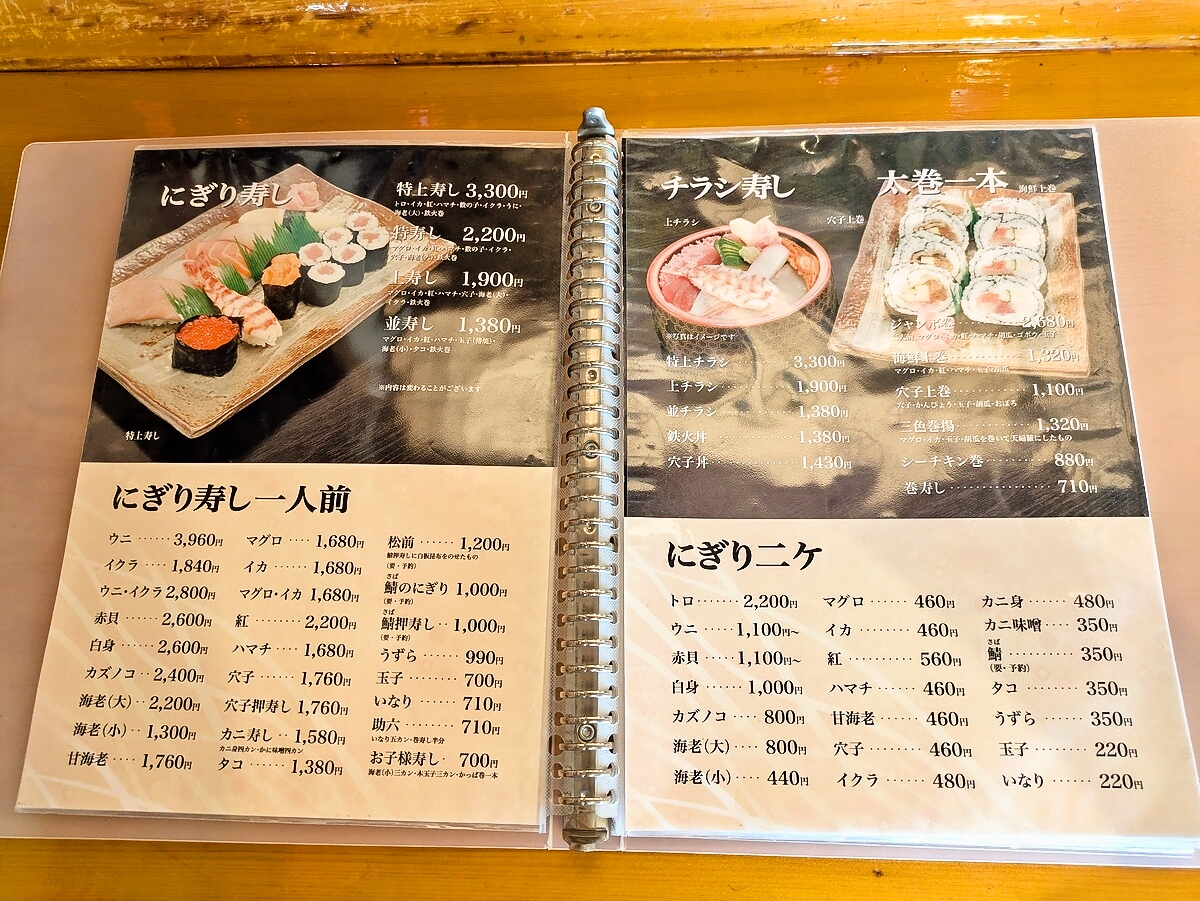 にぎり寿し
特上寿し 3,300円
トロ・イカ・紅・ハマチ・数の子・イクラ・うに・
海老(大)・鉄火巻
特寿し 2,200円
マグロ・イカ・紅・ハマチ・数の子・イクラ・
穴子・海老(小)・鉄火巻
上寿し 1,900円
マグロ・イカ・紅・ハマチ・穴子・海老(大)・
イクラ・鉄火巻
並寿し 1,380円
マグロ・イカ・紅・ハマチ・玉子(薄焼)・
海老(小)・タコ・鉄火巻
※内容は変わることがございます
特上寿し
にぎり寿し一人前
ウニ ⋯⋯ 3,960円
イクラ ⋯⋯ 1,840円
ウニ・イクラ 2,800円
赤貝 ⋯⋯ 2,600円
白身 ⋯⋯ 2,600円
カズノコ ⋯ 2,400円
海老(大) ⋯ 2,200円
海老(小) ⋯ 1,300円
甘海老 ⋯⋯ 1,760円
マグロ ⋯⋯ 1,680円
イカ ⋯⋯ 1,680円
マグロ・イカ 1,680円
紅 ⋯⋯ 2,200円
ハマチ ⋯⋯ 1,680円
穴子 ⋯⋯ 1,760円
穴子押寿し 1,760円
カニ寿し ⋯ 1,580円
カニ身四カン・かに味噌四カン
タコ ⋯⋯ 1,380円
松前 ⋯⋯ 1,200円
鯖押寿しに白板昆布をのせたもの
(要・予約)
さば
鯖のにぎり 1,000円
(要・予約)
さば
鯖押寿し ⋯ 1,000円
(要・予約)
うずら ⋯⋯ 990円
玉子 ⋯⋯ 700円
いなり ⋯⋯ 710円
助六 ⋯⋯ 710円
いなり五カン・巻寿し半分
お子様寿し ⋯ 700円
海老(小)三カン・本玉子三カン・かっぱ巻一本
チラシ寿し
上チラシ
※写真はイメージです
特上チラシ ⋯⋯ 3,300円
上チラシ ⋯⋯ 1,900円
並チラシ ⋯⋯ 1,380円
鉄火丼 ⋯⋯ 1,380円
穴子丼 ⋯⋯ 1,430円
太巻一本
海鮮上巻
穴子上巻
ジャンボ巻 2,680円
マグロ・イカ・紅・ハマチ・胡瓜・ゴボウ・玉子
海鮮上巻 ⋯⋯ 1,320円
マグロ・イカ・紅・ハマチ・玉子・胡瓜
穴子上巻 ⋯⋯ 1,100円
穴子・かんぴょう・玉子・胡瓜・おぼろ
三色巻揚 ⋯⋯ 1,320円
マグロ・イカ・玉子・胡瓜を巻いて天婦羅にしたもの
シーチキン巻 ⋯⋯ 880円
巻寿し ⋯⋯ 710円
にぎり二ケ
トロ ⋯⋯ 2,200円
ウニ ⋯⋯ 1,100円~
赤貝 ⋯⋯ 1,100円~
白身 ⋯⋯ 1,000円
カズノコ ⋯⋯ 800円
海老(大) ⋯⋯ 800円
海老(小) ⋯⋯ 440円
マグロ ⋯⋯ 460円
イカ ⋯⋯ 460円
紅 ⋯⋯ 560円
ハマチ ⋯⋯ 460円
甘海老 ⋯⋯ 460円
穴子 ⋯⋯ 460円
イクラ ⋯⋯ 480円
カニ身 ⋯⋯ 480円
カニ味噌 ⋯⋯ 350円
さば
鯖 ⋯⋯ 350円
(要・予約)
タコ ⋯⋯ 350円
うずら ⋯⋯ 350円
玉子 ⋯⋯ 220円
いなり ⋯⋯ 220円